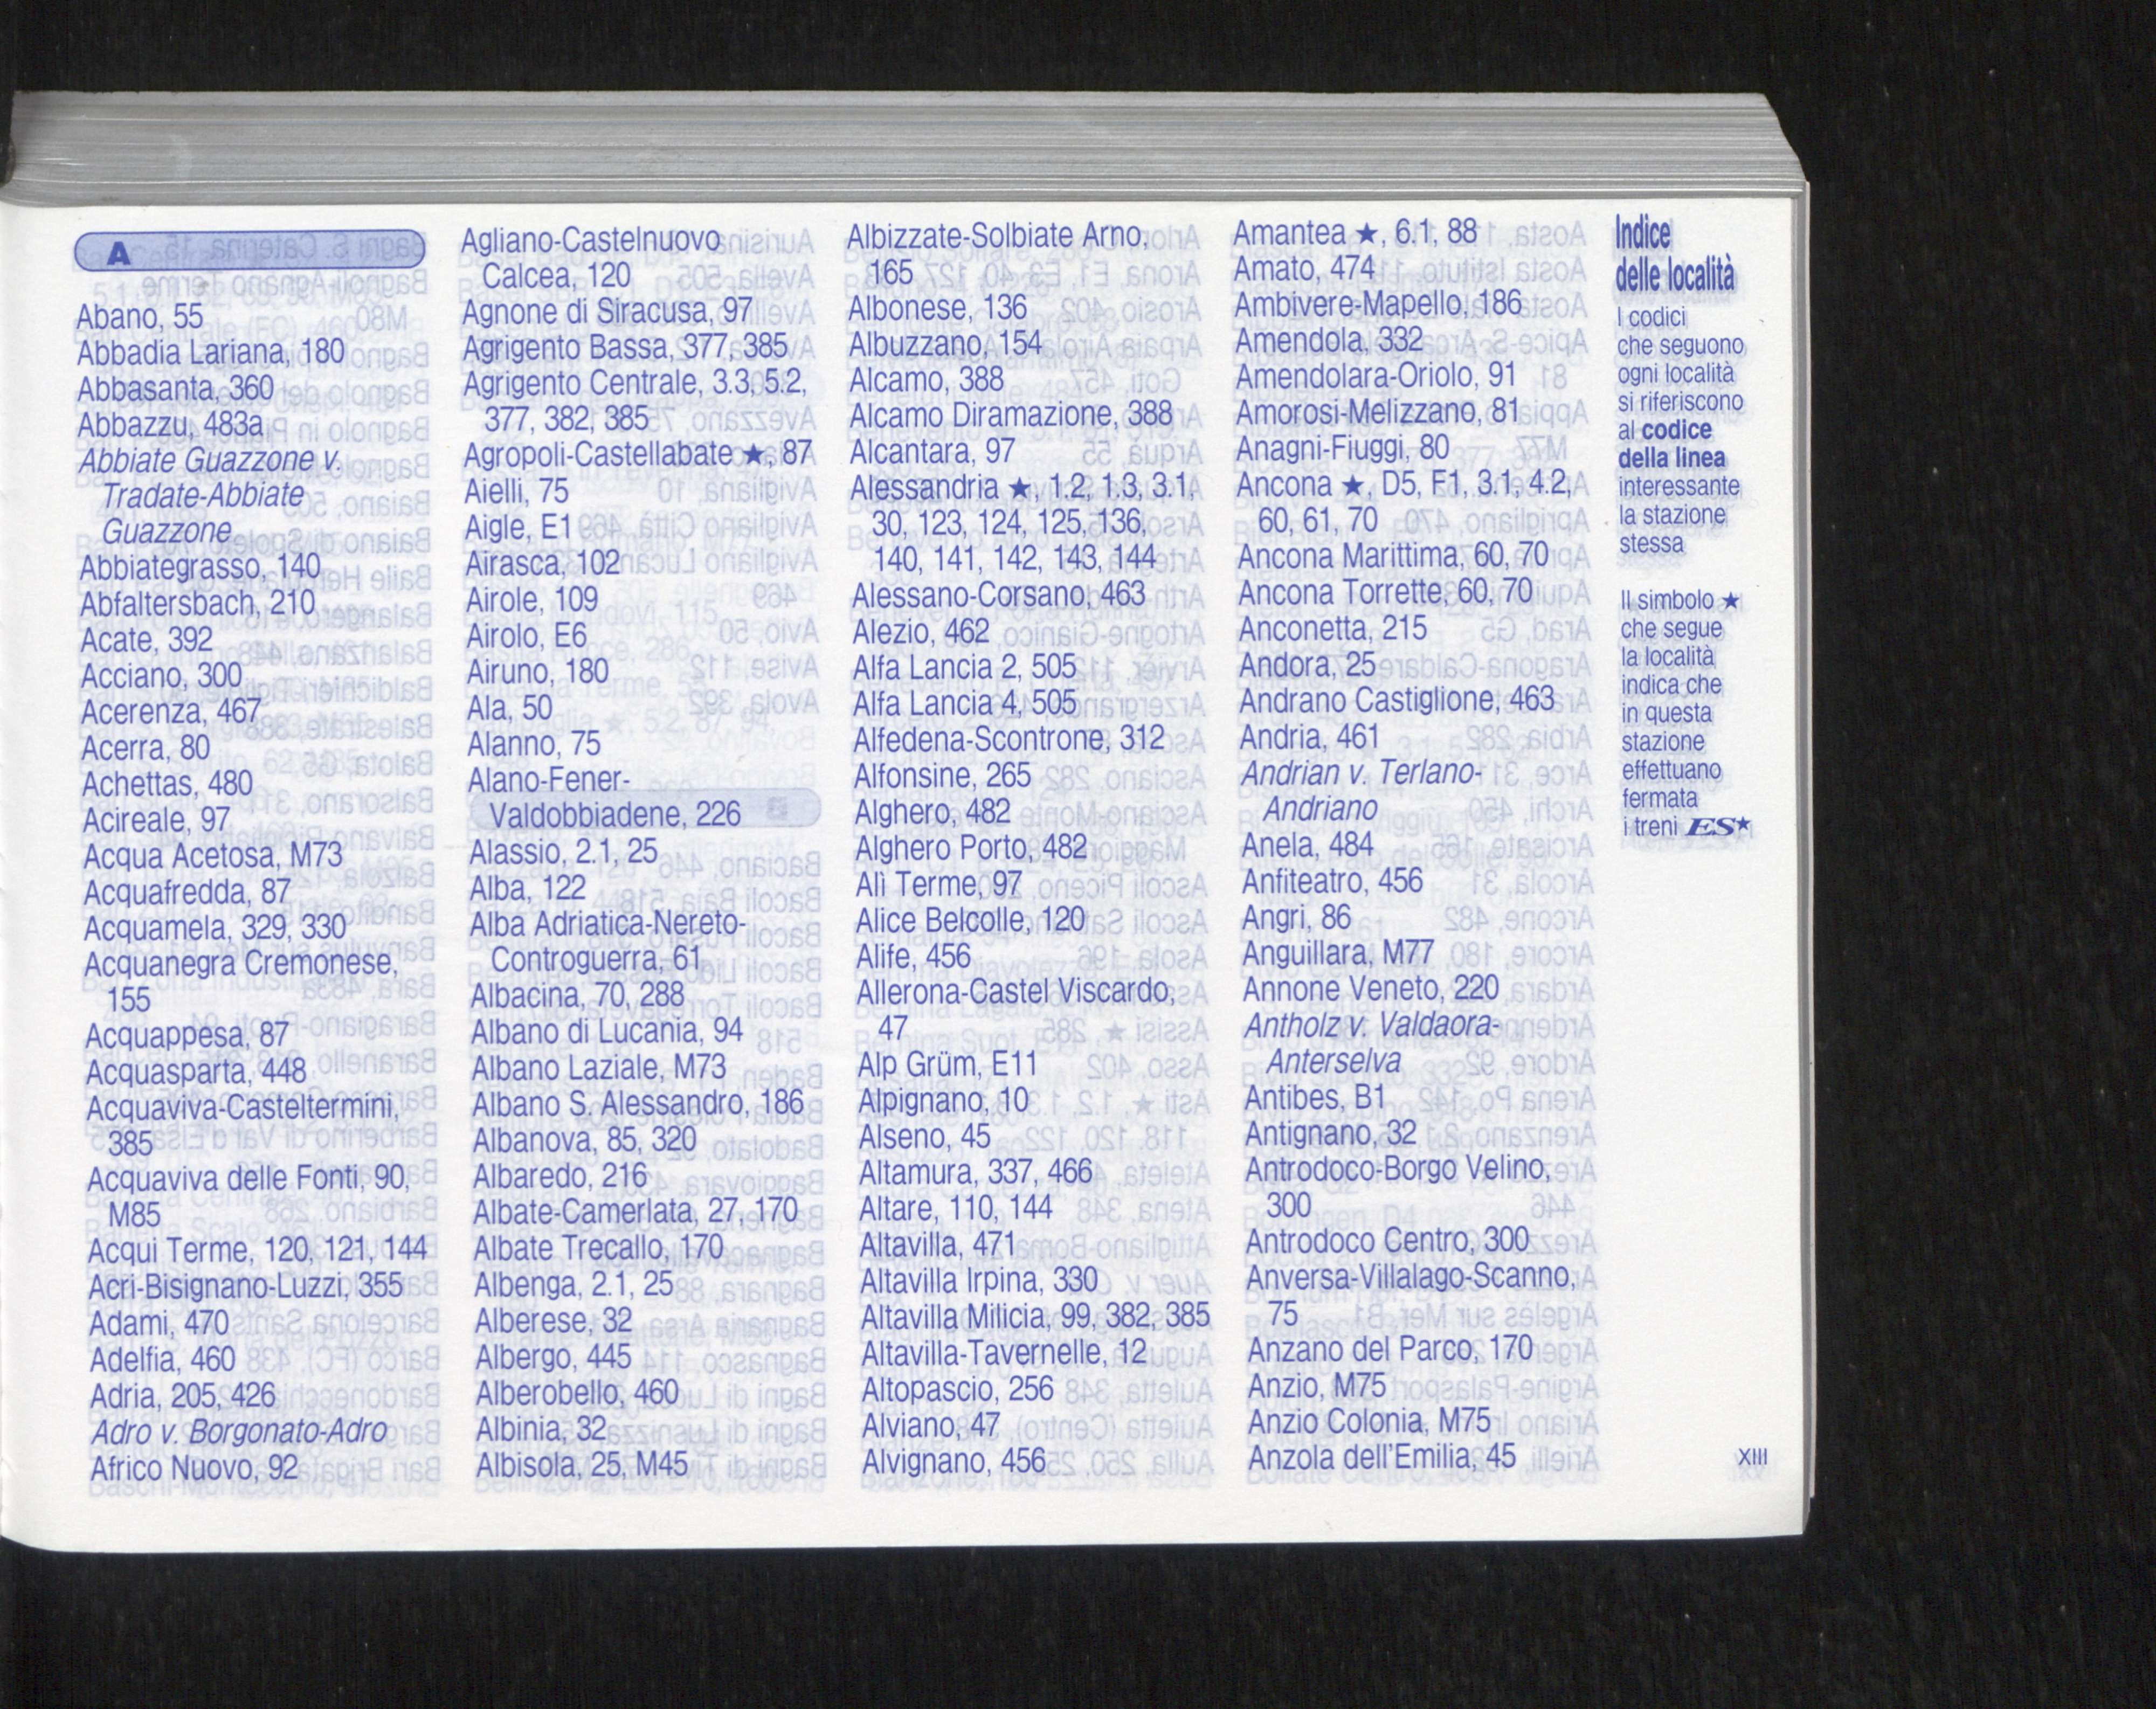 A
Abano, 55
Abbadia Lariana, 180
Abbasanta, 360
Abbazzu, 483a
Abbiate Guazzone v.
Tradate-Abbiate
Guazzone
Abbiategrasso, 140
Abfaltersbach, 210
Acate, 392
Acciano, 300
Acerenza, 467
Acerra, 80
Achettas, 480
Acireale, 97
Acqua Acetosa, M73
Acquafredda, 87
Acquamela, 329, 330
Acquanegra Cremonese,
155
Acquappesa, 87
Acquasparta, 448
Acquaviva-Casteltermini,
385
Acquaviva delle Fonti, 90,
M85
Acqui Terme, 120, 121, 144
Acri-Bisignano-Luzzi, 355
Adami, 470
Adelfia, 460
Adria, 205, 426
Adro v. Borgonato-Adro
Africo Nuovo, 92
Agliano-Castelnuovo
Calcea, 120
Agnone di Siracusa, 97
Agrigento Bassa, 377, 385
Agrigento Centrale, 3.3, 5.2,
377, 382, 385
Agropoli-Castellabate ★, 87
Aielli, 75
Aigle, E1
Airasca, 102
Airole, 109
Airolo, E6
Airuno, 180
Ala, 50
Alanno, 75
Alano-Fener-
Valdobbiadene, 226
Alassio, 2.1, 25
Alba, 122
Alba Adriatica-Nereto-
Controguerra, 61
Albacina, 70, 288
Albano di Lucania, 94
Albano Laziale, M73
Albano S. Alessandro, 186
Albanova, 85, 320
Albaredo, 216
Albate-Camerlata, 27, 170
Albate Trecallo, 170
Albenga, 2.1, 25
Alberese, 32
Albergo, 445
Alberobello, 460
Albinia, 32
Albisola, 25, M45
Albizzate-Solbiate Arno,
165
Albonese, 136
Albuzzano, 154
Alcamo, 388
Alcamo Diramazione, 388
Alcantara, 97
Alessandria ★, 1.2, 1.3, 3.1,
30, 123, 124, 125, 136,
140, 141, 142, 143, 144
Alessano-Corsano, 463
Alezio, 462
Alfa Lancia 2, 505
Alfa Lancia 4, 505
Alfedena-Scontrone, 312
Alfonsine, 265
Alghero, 482
Alghero Porto, 482
Alì Terme, 97
Alice Belcolle, 120
Alife, 456
Allerona-Castel Viscardo,
47
Alp Grüm, E11
Alpignano, 10
Alseno, 45
Altamura, 337, 466
Altare, 110, 144
Altavilla, 471
Altavilla Irpina, 330
Altavilla Milicia, 99, 382, 385
Altavilla-Tavernelle, 12
Altopascio, 256
Alviano, 47
Alvignano, 456
Amantea ★, 6.1, 88
Amato, 474
Ambivere-Mapello, 186
Amendola, 332
Amendolara-Oriolo, 91
Amorosi-Melizzano, 81
Anagni-Fiuggi, 80
Ancona ★, D5, F1, 3.1, 4.2,
60, 61, 70
Ancona Marittima, 60, 70
Ancona Torrette, 60, 70
Anconetta, 215
Andora, 25
Andrano Castiglione, 463
Andria, 461
Andrian v. Terlano-
Andriano
Anela, 484
Anfiteatro, 456
Angri, 86
Anguillara, M77
Annone Veneto, 220
Antholz v. Valdaora-
Anterselva
Antibes, B1
Antignano, 32
Antrodoco-Borgo Velino,
300
Antrodoco Centro, 300
Anversa-Villalago-Scanno,
75
Anzano del Parco, 170
Anzio, M75
Anzio Colonia, M75
Anzola dell'Emilia, 45
Indice
delle località
I codici
che seguono
ogni località
si riferiscono
al codice
della linea
interessante
la stazione
stessa
Il simbolo ★
che segue
la località
indica che
in questa
stazione
effettuano
fermata
i treni ES★
XIII